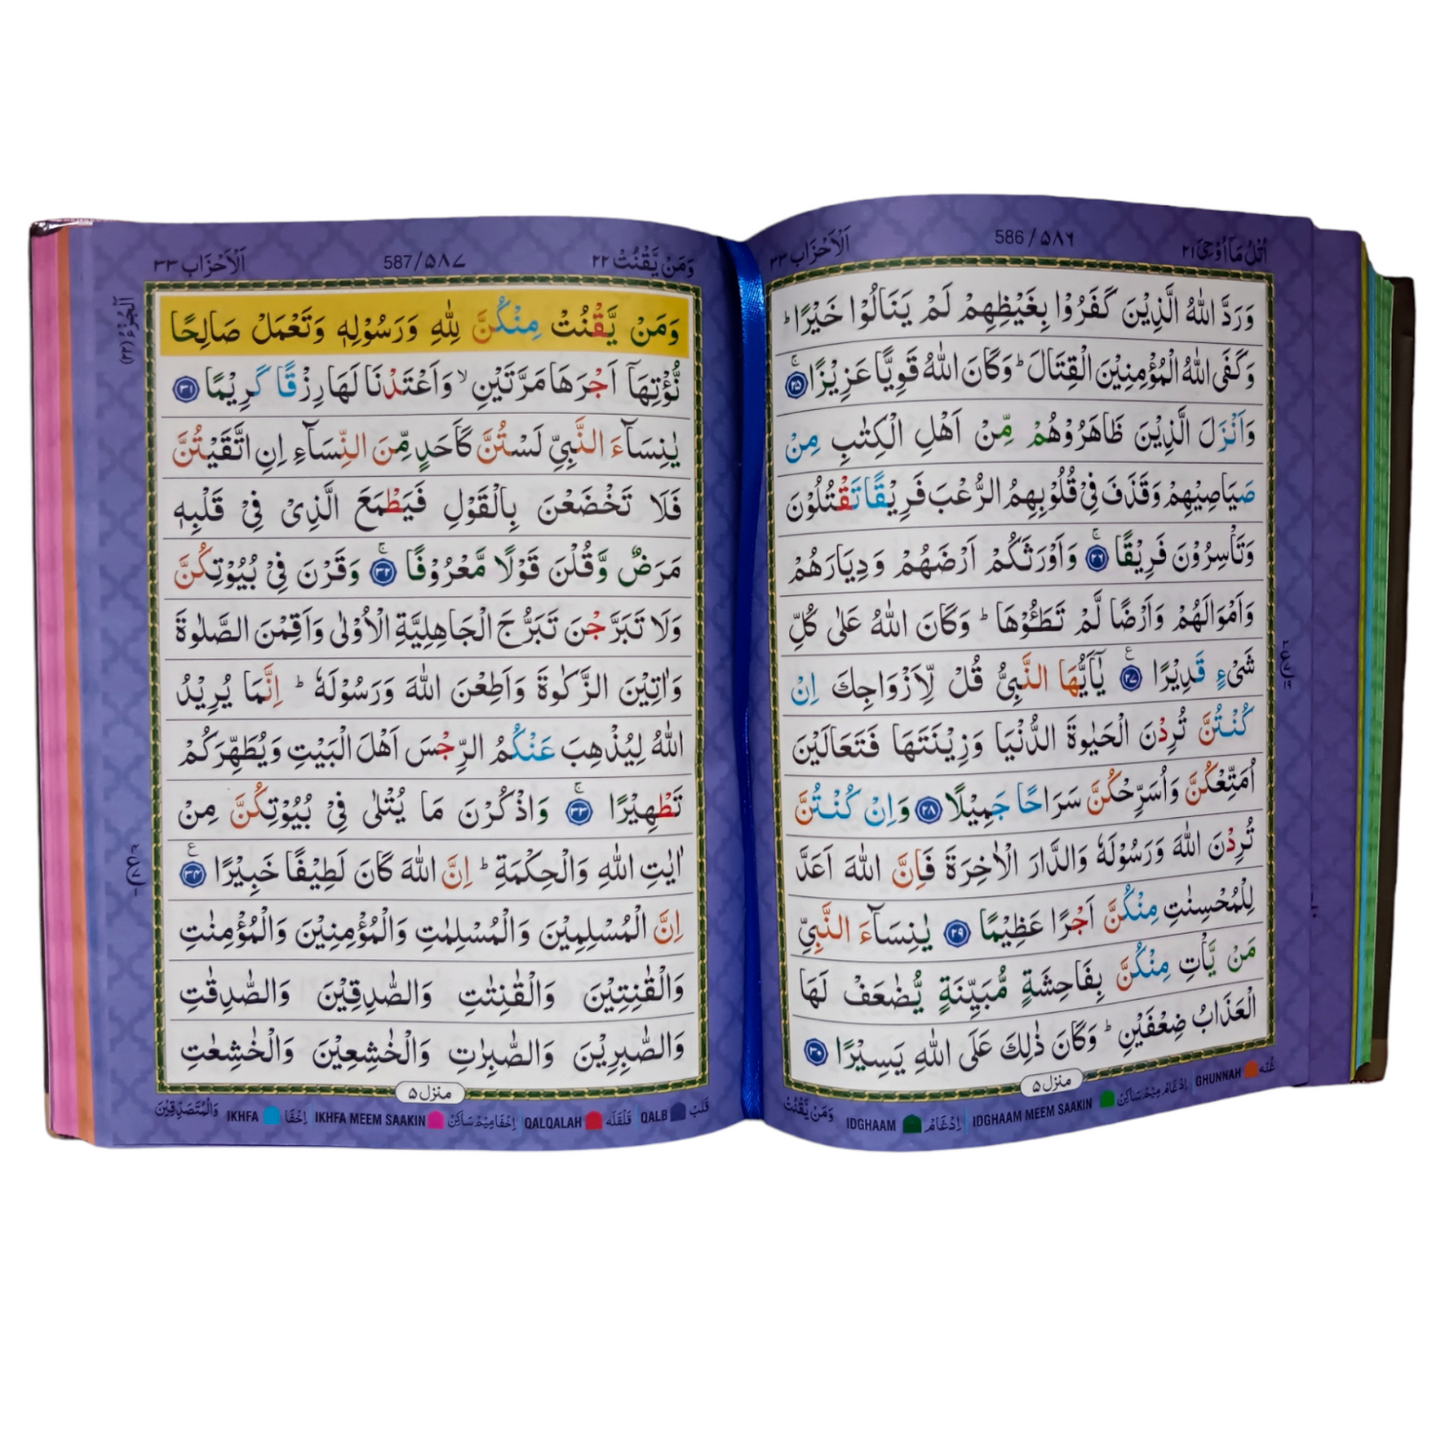 اُتْلُ مَاۤ اُوْحِیَ ٢١
586/۵۸۶
اَلْاَحْزَاب ٣٣
وَرَدَّ اللّٰهُ الَّذِيْنَ كَفَرُوْا بِغَيْظِهِمْ لَمْ يَنَالُوْا خَيْرًا ؕ
وَكَفَى اللّٰهُ الْمُؤْمِنِيْنَ الْقِتَالَ ؕ وَكَانَ اللّٰهُ قَوِيًّا عَزِيْزًا ۚ ﴿۲۵﴾
وَاَنْزَلَ الَّذِيْنَ ظَاهَرُوْهُمْ مِّنْ اَهْلِ الْكِتٰبِ مِنْ
صَيَاصِيْهِمْ وَقَذَفَ فِيْ قُلُوْبِهِمُ الرُّعْبَ فَرِيْقًا تَقْتُلُوْنَ
وَتَاْسِرُوْنَ فَرِيْقًا ۚ ﴿۲۶﴾ وَاَوْرَثَكُمْ اَرْضَهُمْ وَدِيَارَهُمْ
وَاَمْوَالَهُمْ وَاَرْضًا لَّمْ تَطَـُٔوْهَا ؕ وَكَانَ اللّٰهُ عَلٰى كُلِّ
شَيْءٍ قَدِيْرًا ﴿۲۷﴾ يٰۤاَيُّهَا النَّبِيُّ قُلْ لِّاَزْوَاجِكَ اِنْ
كُنْتُنَّ تُرِدْنَ الْحَيٰوةَ الدُّنْيَا وَزِيْنَتَهَا فَتَعَالَيْنَ
اُمَتِّعْكُنَّ وَاُسَرِّحْكُنَّ سَرَاحًا جَمِيْلًا ﴿۲۸﴾ وَاِنْ كُنْتُنَّ
تُرِدْنَ اللّٰهَ وَرَسُوْلَهٗ وَالدَّارَ الْاٰخِرَةَ فَاِنَّ اللّٰهَ اَعَدَّ
لِلْمُحْسِنٰتِ مِنْكُنَّ اَجْرًا عَظِيْمًا ﴿۲۹﴾ يٰنِسَآءَ النَّبِيِّ
مَنْ يَّاْتِ مِنْكُنَّ بِفَاحِشَةٍ مُّبَيِّنَةٍ يُّضٰعَفْ لَهَا
الْعَذَابُ ضِعْفَيْنِ ؕ وَكَانَ ذٰلِكَ عَلَى اللّٰهِ يَسِيْرًا ﴿۳۰﴾
منزل ۵
غُنّه GHUNNAH اِدْغَام مِيْم سَاكِنْ IDGHAAM MEEM SAAKIN اِدْغَامْ IDGHAAM وَمَنْ يَّقْنُتْ
وَمَنْ يَّقْنُتْ ٢٢
587/۵۸۷
اَلْاَحْزَاب ٣٣
اَلْجُزْءُ (٢٢)
وَمَنْ يَّقْنُتْ مِنْكُنَّ لِلّٰهِ وَرَسُوْلِهٖ وَتَعْمَلْ صَالِحًا
نُّؤْتِهَاۤ اَجْرَهَا مَرَّتَيْنِ ۙ وَاَعْتَدْنَا لَهَا رِزْقًا كَرِيْمًا ﴿۳۱﴾
يٰنِسَآءَ النَّبِيِّ لَسْتُنَّ كَاَحَدٍ مِّنَ النِّسَآءِ اِنِ اتَّقَيْتُنَّ
فَلَا تَخْضَعْنَ بِالْقَوْلِ فَيَطْمَعَ الَّذِيْ فِيْ قَلْبِهٖ
مَرَضٌ وَّقُلْنَ قَوْلًا مَّعْرُوْفًا ۚ ﴿۳۲﴾ وَقَرْنَ فِيْ بُيُوْتِكُنَّ
وَلَا تَبَرَّجْنَ تَبَرُّجَ الْجَاهِلِيَّةِ الْاُوْلٰى وَاَقِمْنَ الصَّلٰوةَ
وَاٰتِيْنَ الزَّكٰوةَ وَاَطِعْنَ اللّٰهَ وَرَسُوْلَهٗ ؕ اِنَّمَا يُرِيْدُ
اللّٰهُ لِيُذْهِبَ عَنْكُمُ الرِّجْسَ اَهْلَ الْبَيْتِ وَيُطَهِّرَكُمْ
تَطْهِيْرًا ۚ ﴿۳۳﴾ وَاذْكُرْنَ مَا يُتْلٰى فِيْ بُيُوْتِكُنَّ مِنْ
اٰيٰتِ اللّٰهِ وَالْحِكْمَةِ ؕ اِنَّ اللّٰهَ كَانَ لَطِيْفًا خَبِيْرًا ﴿۳۴﴾
اِنَّ الْمُسْلِمِيْنَ وَالْمُسْلِمٰتِ وَالْمُؤْمِنِيْنَ وَالْمُؤْمِنٰتِ
وَالْقٰنِتِيْنَ وَالْقٰنِتٰتِ وَالصّٰدِقِيْنَ وَالصّٰدِقٰتِ
وَالصّٰبِرِيْنَ وَالصّٰبِرٰتِ وَالْخٰشِعِيْنَ وَالْخٰشِعٰتِ
منزل ۵
قَلبْ QALB قَلْقَلَه QALQALAH اِخْفَا مِيْم سَاكِنْ IKHFA MEEM SAAKIN اِخْفَا IKHFA وَالْمُتَصَدِّقِيْنَ